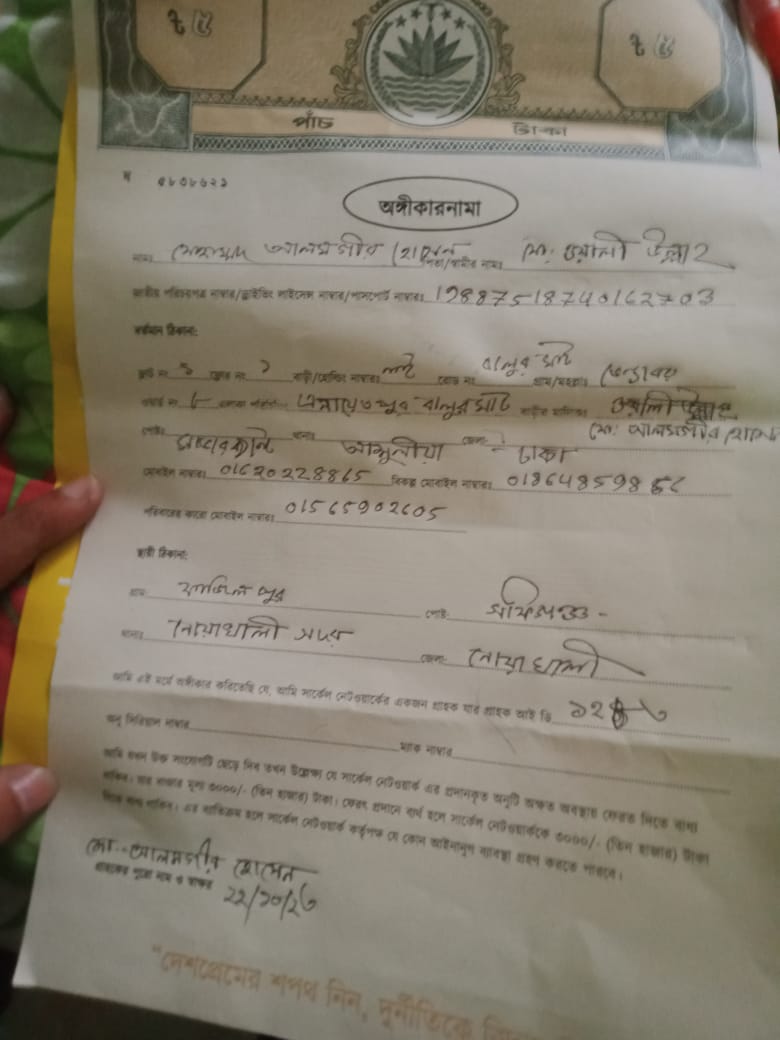 ৳ ৫ ৳ ৫
পাঁচ টাকা
অঙ্গীকারনামা
নামঃ মোহাম্মদ আলমগীর হোসেন পিতা/স্বামীর নামঃ মো: ওয়ালী উল্লাহ
জাতীয় পরিচয়পত্র নাম্বার/ড্রাইভিং লাইসেন্স নাম্বার/পাসপোর্ট নাম্বারঃ 19887518740162703
বর্তমান ঠিকানা:
ফ্ল্যাট নং ফ্লোর নং বাড়ী/হোল্ডিং নাম্বারঃ নাই রোড নং বালুর মাঠ গ্রাম/মহল্লাঃ
ওয়ার্ড নং ৮ এনায়েতপুর বালুর মাঠ বাড়ীর মালিকঃ ওয়ালী উল্লাহ
মো: আলমগীর হোসেন
পোষ্টঃ থানাঃ আশুলীয়া জেলাঃ ঢাকা
মোবাইল নাম্বারঃ 01620228865 বিকল্প মোবাইল নাম্বারঃ
পরিবারের কারো মোবাইল নাম্বারঃ 01565902605
স্থায়ী ঠিকানা:
গ্রামঃ ফাজিলপুর পোষ্টঃ
থানাঃ নোয়াখালী সদর জেলাঃ নোয়াখালী
আমি এই মর্মে অঙ্গীকার করিতেছি যে, আমি সার্কেল নেটওয়ার্কের একজন গ্রাহক যার গ্রাহক আই ডি
অনু সিরিয়াল নাম্বার ম্যাক নাম্বার
আমি যখন উক্ত সংযোগটি ছেড়ে দিব তখন উল্লেখ্য যে সার্কেল নেটওয়ার্ক এর প্রদানকৃত অনুটি অক্ষত অবস্থায় ফেরত দিতে বাধ্য
থাকিব। যার বাজার মূল্য ৩০০০/- (তিন হাজার) টাকা। ফেরৎ প্রদানে ব্যর্থ হলে সার্কেল নেটওয়ার্ককে ৩০০০/- (তিন হাজার) টাকা
দিতে বাধ্য থাকিব। এর ব্যতিক্রম হলে সার্কেল নেটওয়ার্ক কর্তৃপক্ষ যে কোন আইনানুগ ব্যবস্থা গ্রহণ করতে পারবে।
মো: আলমগীর হোসেন
গ্রাহকের পুরো নাম ও স্বাক্ষর
২২/১০/২৩
"দেশপ্রেমের শপথ নিন, দুর্নীতিকে